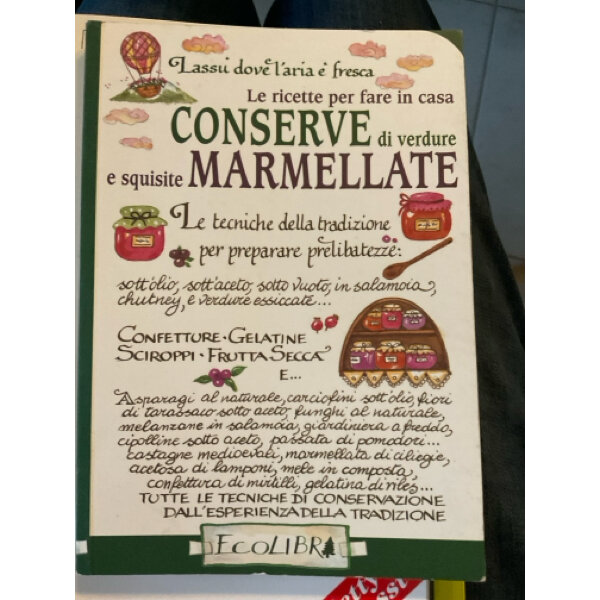 Lassù dove l'aria è fresca
Le ricette per fare in casa
CONSERVE di verdure
e squisite MARMELLATE
Le tecniche della tradizione
per preparare prelibatezze:
sott'olio, sott'aceto, sotto vuoto, in salamoia,
chutney, e verdure essiccate...
CONFETTURE · GELATINE
SCIROPPI · FRUTTA SECCA
E...
Asparagi al naturale, carciofini sott'olio, fiori
di tarassaco sotto aceto, funghi al naturale,
melanzane in salamoia, giardiniera a freddo,
cipolline sotto aceto, passata di pomodori...
castagne medioevali, marmellata di ciliegie,
acetosa di lamponi, mele in composta,
confettura di mirtilli, gelatina di ribes...
TUTTE LE TECNICHE DI CONSERVAZIONE
DALL'ESPERIENZA DELLA TRADIZIONE
ECOLIBRI